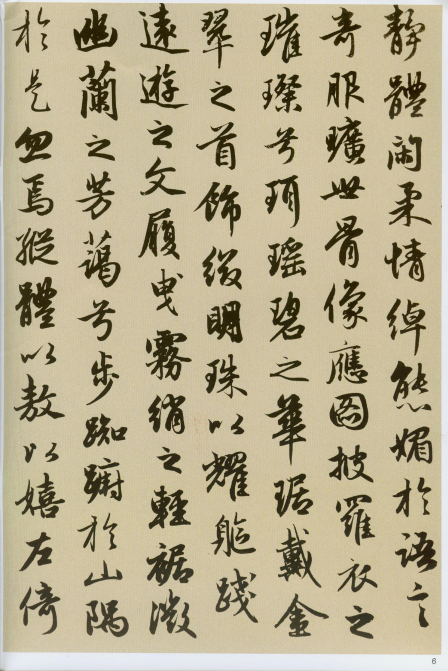 靜體閑柔情綽態媚於語言
奇服曠世骨像應圖披羅衣之
璀璨兮珥瑤碧之華琚戴金
翠之首飾綴明珠以耀軀踐
遠遊之文履曳霧綃之輕裾微
幽蘭之芳藹兮步踟躕於山隅
於是忽焉縱體以敖以嬉左倚
6